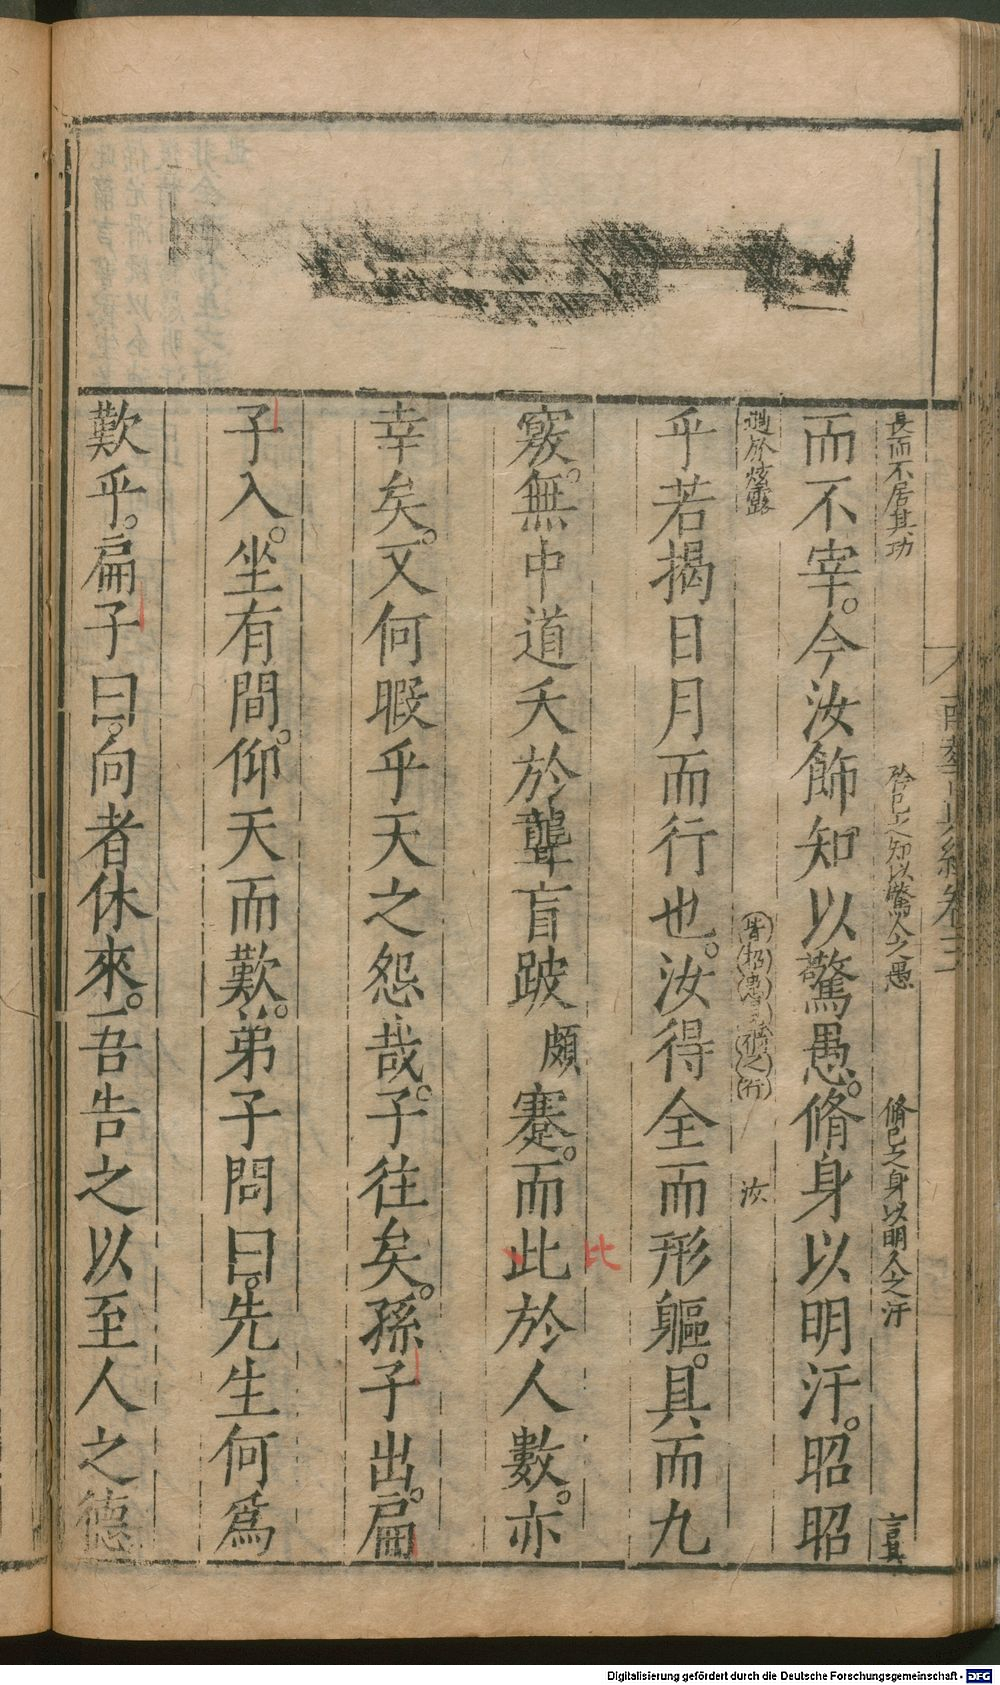 南華真經卷三
長而不居其功
矜己之知以驚人之愚
脩己之身以明人之汙
言其
而不宰。今汝飾知以驚愚。脩身以明汙。昭昭
過於炫露
汝
乎若揭日月而行也。汝得全而形軀。具而九
竅。無中道夭於聾盲跛頗蹇。而此於人數。亦
比
幸矣。又何暇乎天之怨哉。子往矣。孫子出。扁
子入。坐有間。仰天而歎。弟子問曰。先生何爲
歎乎。扁子曰。向者休來。吾告之以至人之德
Digitalisierung gefördert durch die Deutsche Forschungsgemeinschaft - DFG